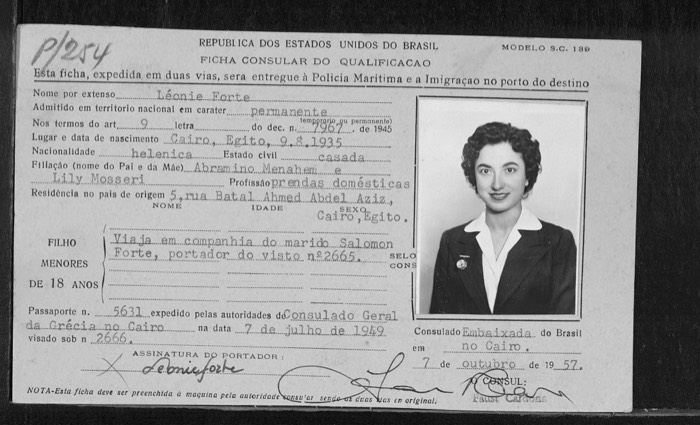 P/254
REPUBLICA DOS ESTADOS UNIDOS DO BRASIL
MODELO S.C. 139
FICHA CONSULAR DO QUALIFICACAO
Esta ficha, expedida em duas vias, sera entregue à Policia Maritima e a Imigraçao no porto do destino
Nome por extenso Léonie Forte
Admitido em territorio nacional em carater permanente
temporario ou permanente)
Nos termos do art. 9 letra do dec. n. 7967, de 1945
Lugar e data de nascimento Cairo, Egito, 9.8.1935
Nacionalidade helenica Estado civil casada
Filiação (nome do Pai e da Mãe) Abramino Menahem e
Lily Mosseri Profissão prendas domésticas
Residência no pais de origem 5, rua Batal Ahmed Abdel Aziz,
NOME IDADE SEXO
Cairo, Egito.
FILHO
MENORES
DE 18 ANOS
Viaja em companhia do marido Salomon
Forte, portador do visto nº2665.
SELO
CONS
Passaporte n. 5631 expedido pelas autoridades de Consulado Geral
da Grécia no Cairo na data 7 de julho de 1949
visado sob n 2666.
Consulado Embaixada do Brasil
em no Cairo.
7 de outubro de 1957.
ASSINATURA DO PORTADOR :
X Leonie Forte
O CONSUL:
Faust Cardona
NOTA-Esta ficha deve ser preenchida à maquina pela autoridade consular sendo as duas vias em original.